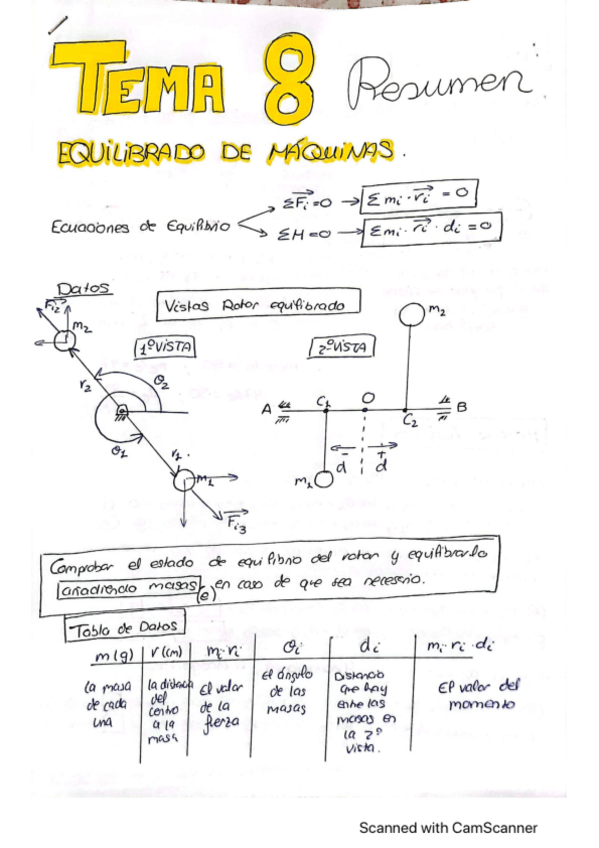 TEMA 8 Resumen
EQUILIBRADO DE MÁQUINAS.
Ecuaciones de Equilibrio
ΣFi=0 → Σmi·ri = 0
ΣM=0 → Σmi·ri·di = 0
Datos
Vistas Rotor equilibrado
1ºVISTA
2ºVISTA
Fi2
m2
r2
θ2
θ1
r1
m1
Fi3
m2
A C1 O C2 B
- +
d d
m1
Comprobar el estado de equilibrio del rotor y equilibrarlo
añadiendo masas (e) en caso de que sea necesario.
Tabla de Datos
m(g) | r(cm) | mi·ri | θi | di | mi·ri·di
la masa de cada una
la distancia del centro a la masa
El valor de la fuerza
El ángulo de las masas
Distancia que hay entre las masas en la 2º vista.
El valor del momento
Scanned with CamScanner